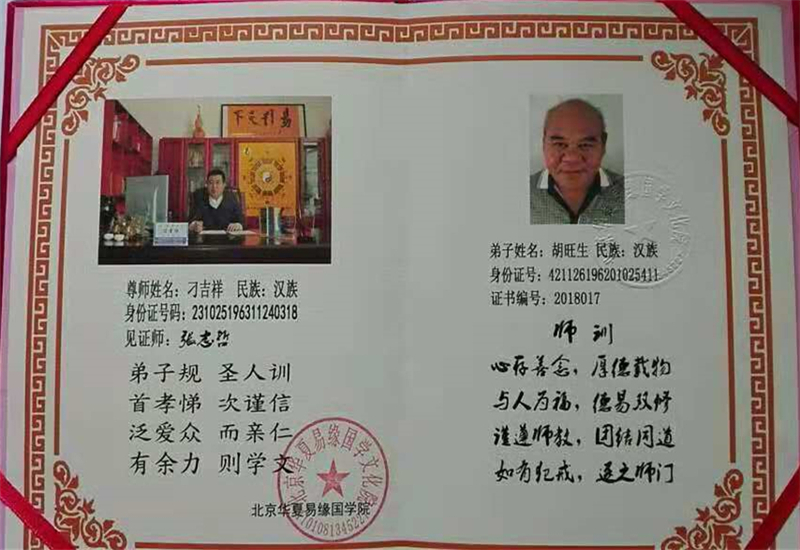 易行天下
尊师姓名：刁吉祥 民族：汉族
身份证号码：231025196311240318
见证师：张志哲
弟子规 圣人训
首孝悌 次谨信
泛爱众 而亲仁
有余力 则学文
北京华夏易缘国学文化院
北京华夏易缘国学院
弟子姓名：胡旺生 民族：汉族
身份证号：421126196201025411
证书编号：2018017
师训
心存善念，厚德载物
与人为福，德易双修
谨遵师教，团结同道
如有犯戒，逐之师门